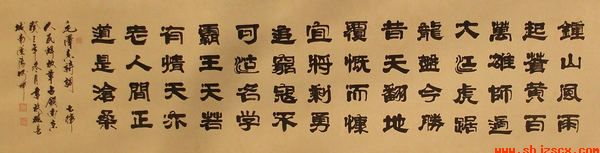 鍾山風雨
起蒼黃百
萬雄師過
大江虎踞
龍盤今勝
昔天翻地
覆慨而慷
宜將剩勇
追窮寇不
可沽名學
霸王天若
有情天亦
老人間正
道是滄桑
毛澤東詩詞 七律
人民解放軍占領南京
癸巳年冬月書
www.shjzscx.com